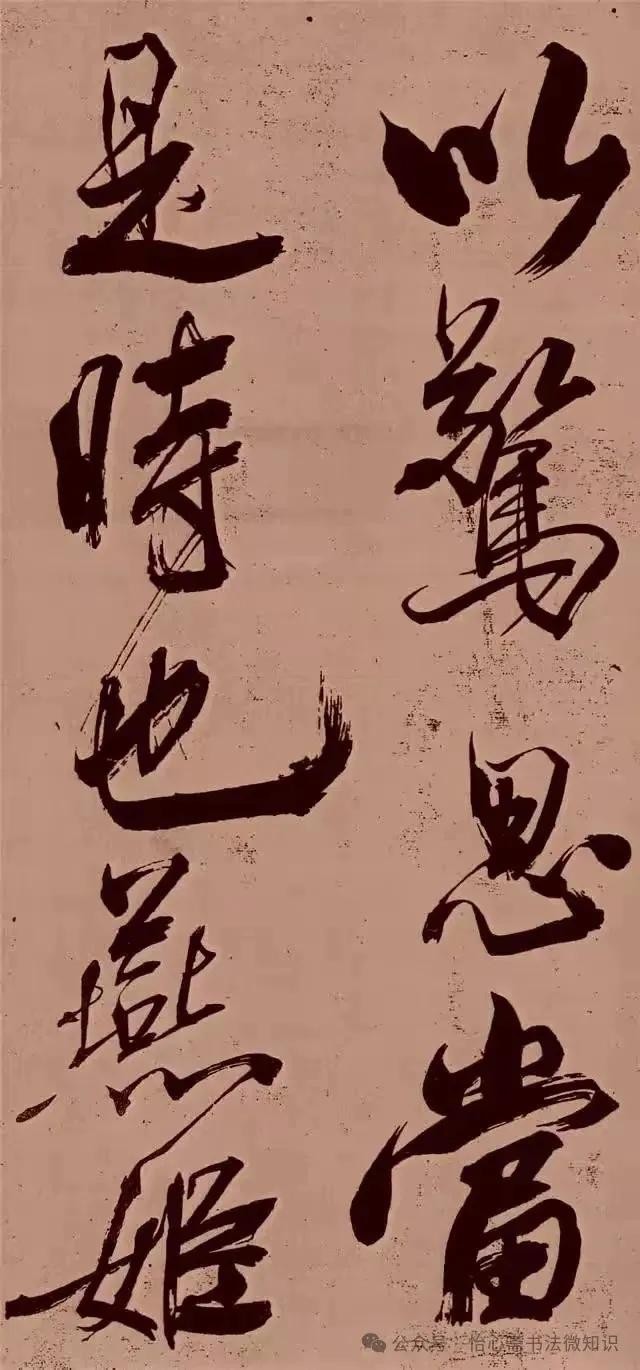 以驚思當
是時也燕姬
公众号：怡心斋书法微知识